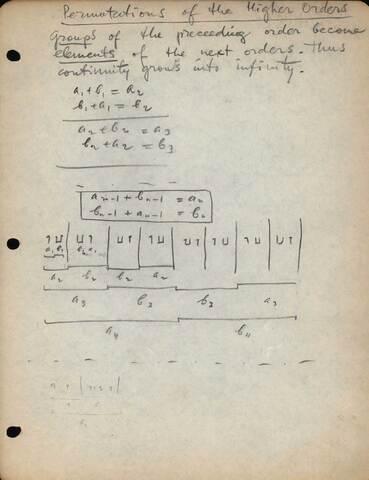 Permutations of the Higher Orders
Groups of the preceeding order become
elements of the next orders. Thus
continuity grows into infinity.
a₁ + b₁ = a₂
b₁ + a₁ = b₂
a₂ + b₂ = a₃
b₂ + a₂ = b₃
aₙ₋₁ + bₙ₋₁ = aₙ
bₙ₋₁ + aₙ₋₁ = bₙ
a₁ b₁ b₁ a₁
a₂ b₂ b₂ a₂
a₃ b₃ b₃ a₃
a₄ b₄